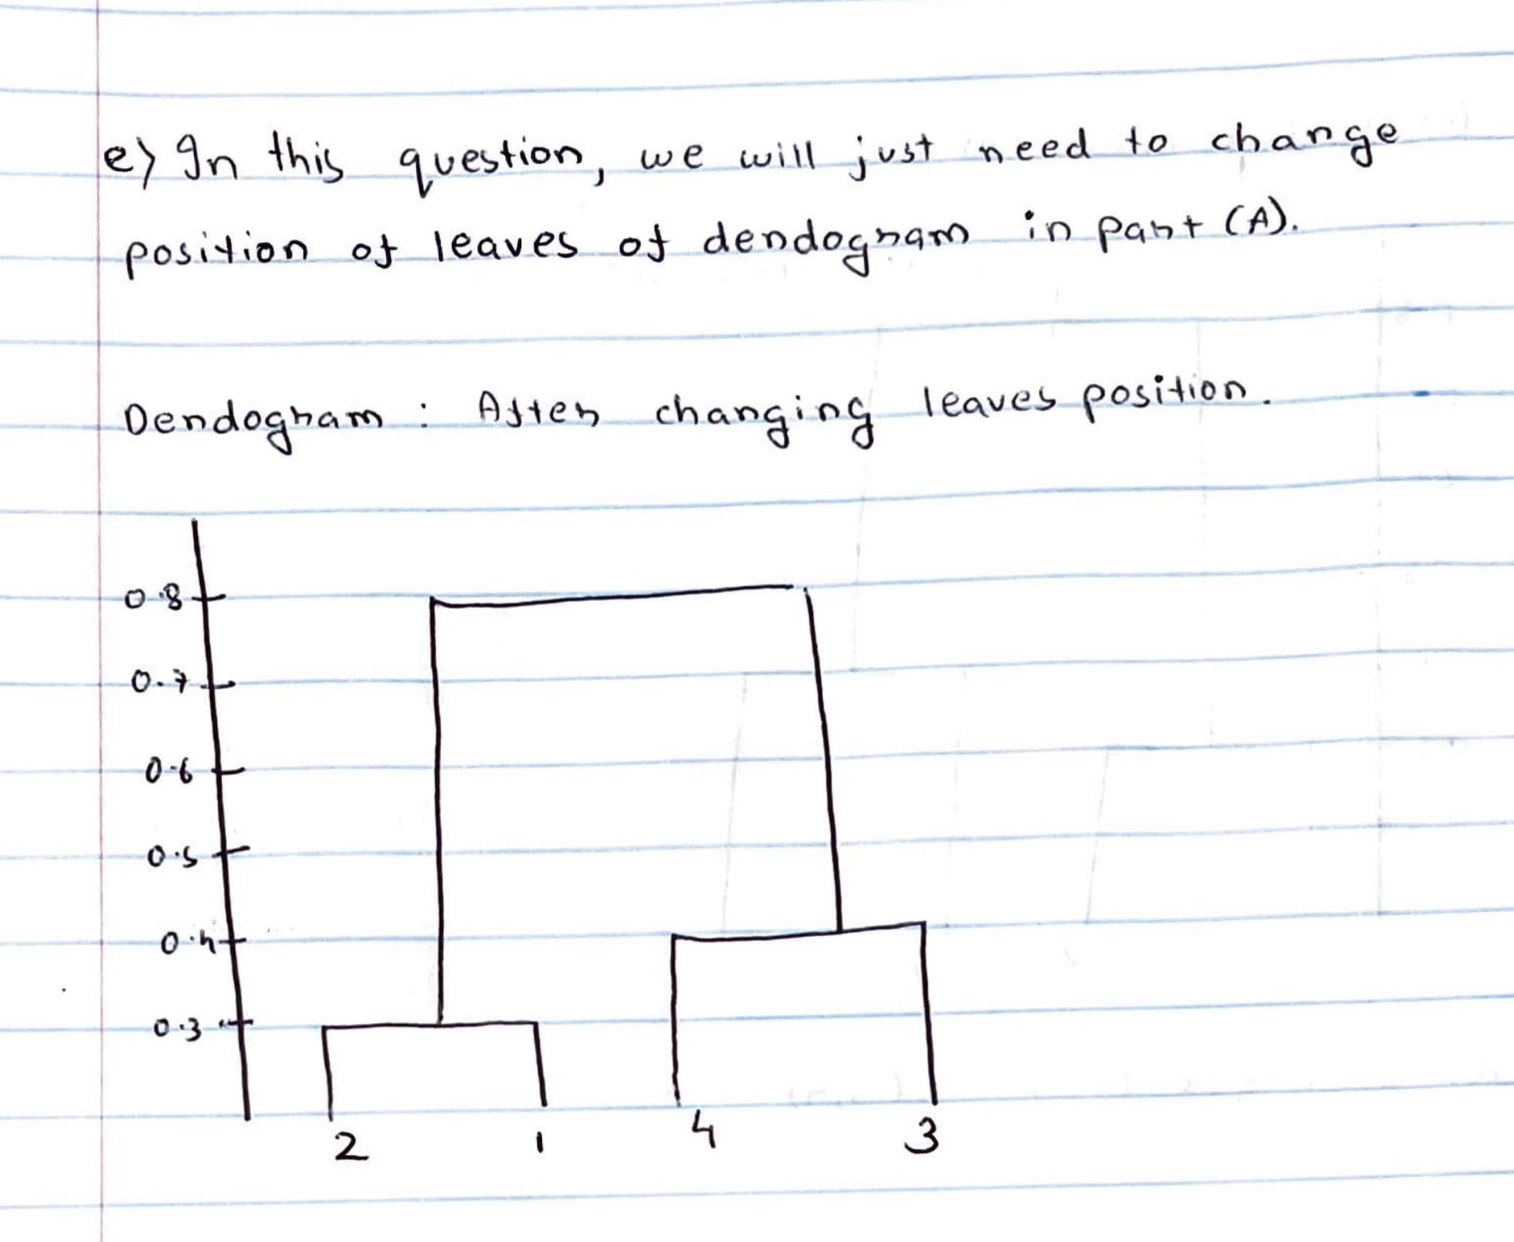 e) In this question, we will just need to change
position of leaves of dendogram in part (A).
Dendogram : After changing leaves position.
0.8
0.7
0.6
0.5
0.4
0.3
2 1 4 3